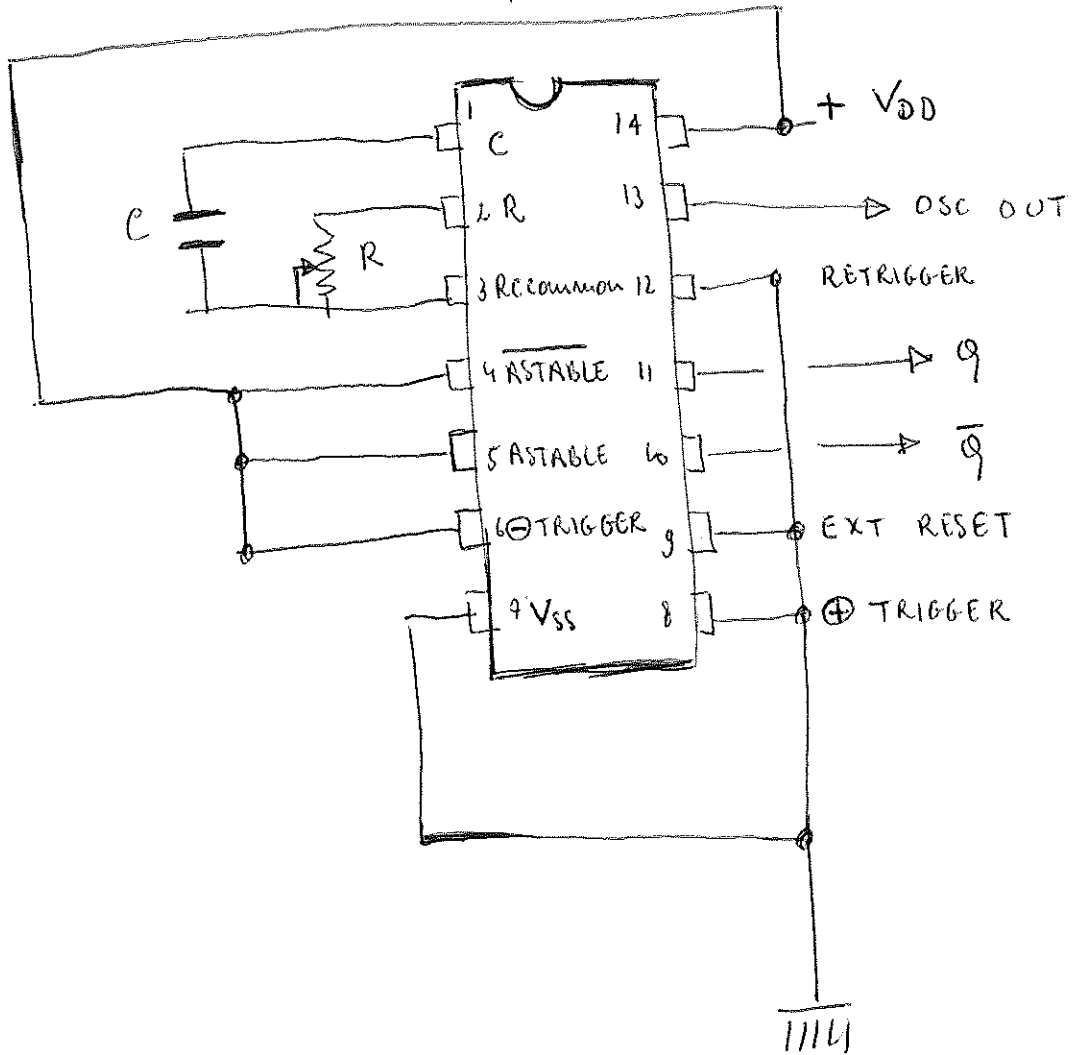 1 14 + VDD
C
13 OSC OUT
C
2 R
R
3 RC COMMON 12 RETRIGGER
4 ASTABLE 11 Q
5 ASTABLE 10 Q
6 ⊖ TRIGGER 9 EXT RESET
7 VSS 8 ⊕ TRIGGER